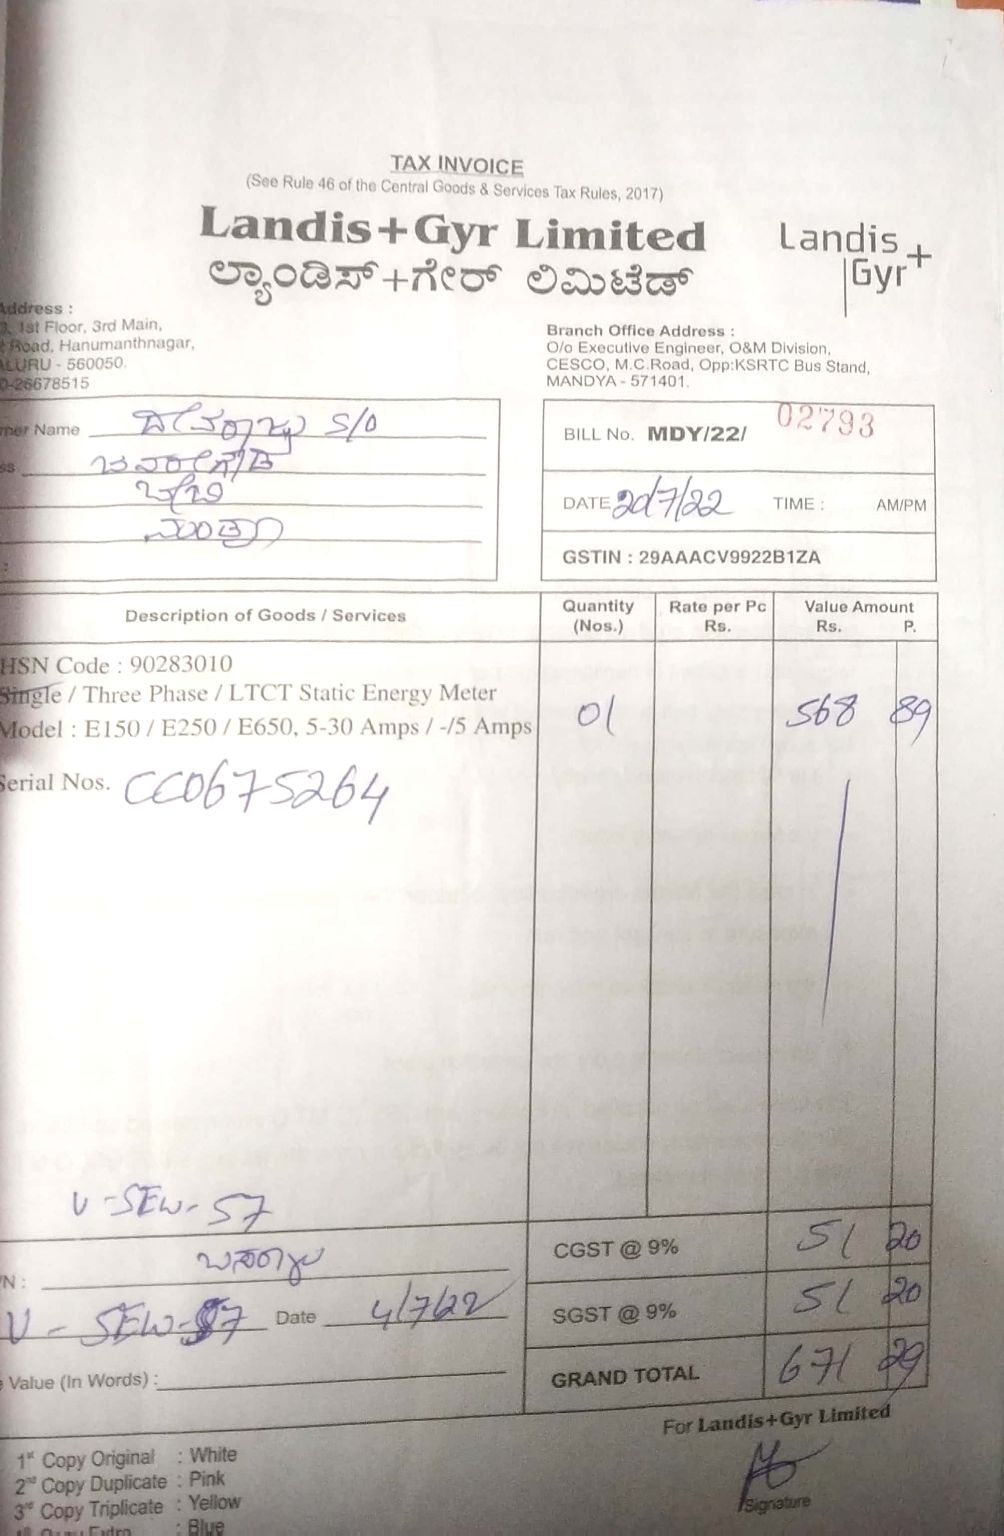 TAX INVOICE
(See Rule 46 of the Central Goods & Services Tax Rules, 2017)
Landis+Gyr Limited
ಲ್ಯಾಂಡಿಸ್+ಗೇರ್ ಲಿಮಿಟೆಡ್
Landis
Gyr+
Address :
1st Floor, 3rd Main,
Road, Hanumanthnagar,
560050.
26678515
Branch Office Address :
O/o Executive Engineer, O&M Division,
CESCO, M.C.Road, Opp:KSRTC Bus Stand,
MANDYA - 571401.
Name S/O
ಮಂಡ್ಯ
BILL No. MDY/22/ 02793
DATE 20/7/22 TIME : AM/PM
GSTIN : 29AAACV9922B1ZA
Description of Goods / Services Quantity (Nos.) Rate per Pc Rs. Value Amount Rs. P.
HSN Code : 90283010
Single / Three Phase / LTCT Static Energy Meter
Model : E150 / E250 / E650, 5-30 Amps / -/5 Amps 01 568 89
Serial Nos. CC0675264
U-SEW-57
CGST @ 9% 51 20
N :
U - SEW-57 Date 4/7/22
SGST @ 9% 51 20
Value (In Words) :
GRAND TOTAL 671 29
For Landis+Gyr Limited
1st Copy Original : White
2nd Copy Duplicate : Pink
3rd Copy Triplicate : Yellow
: Blue
Signature